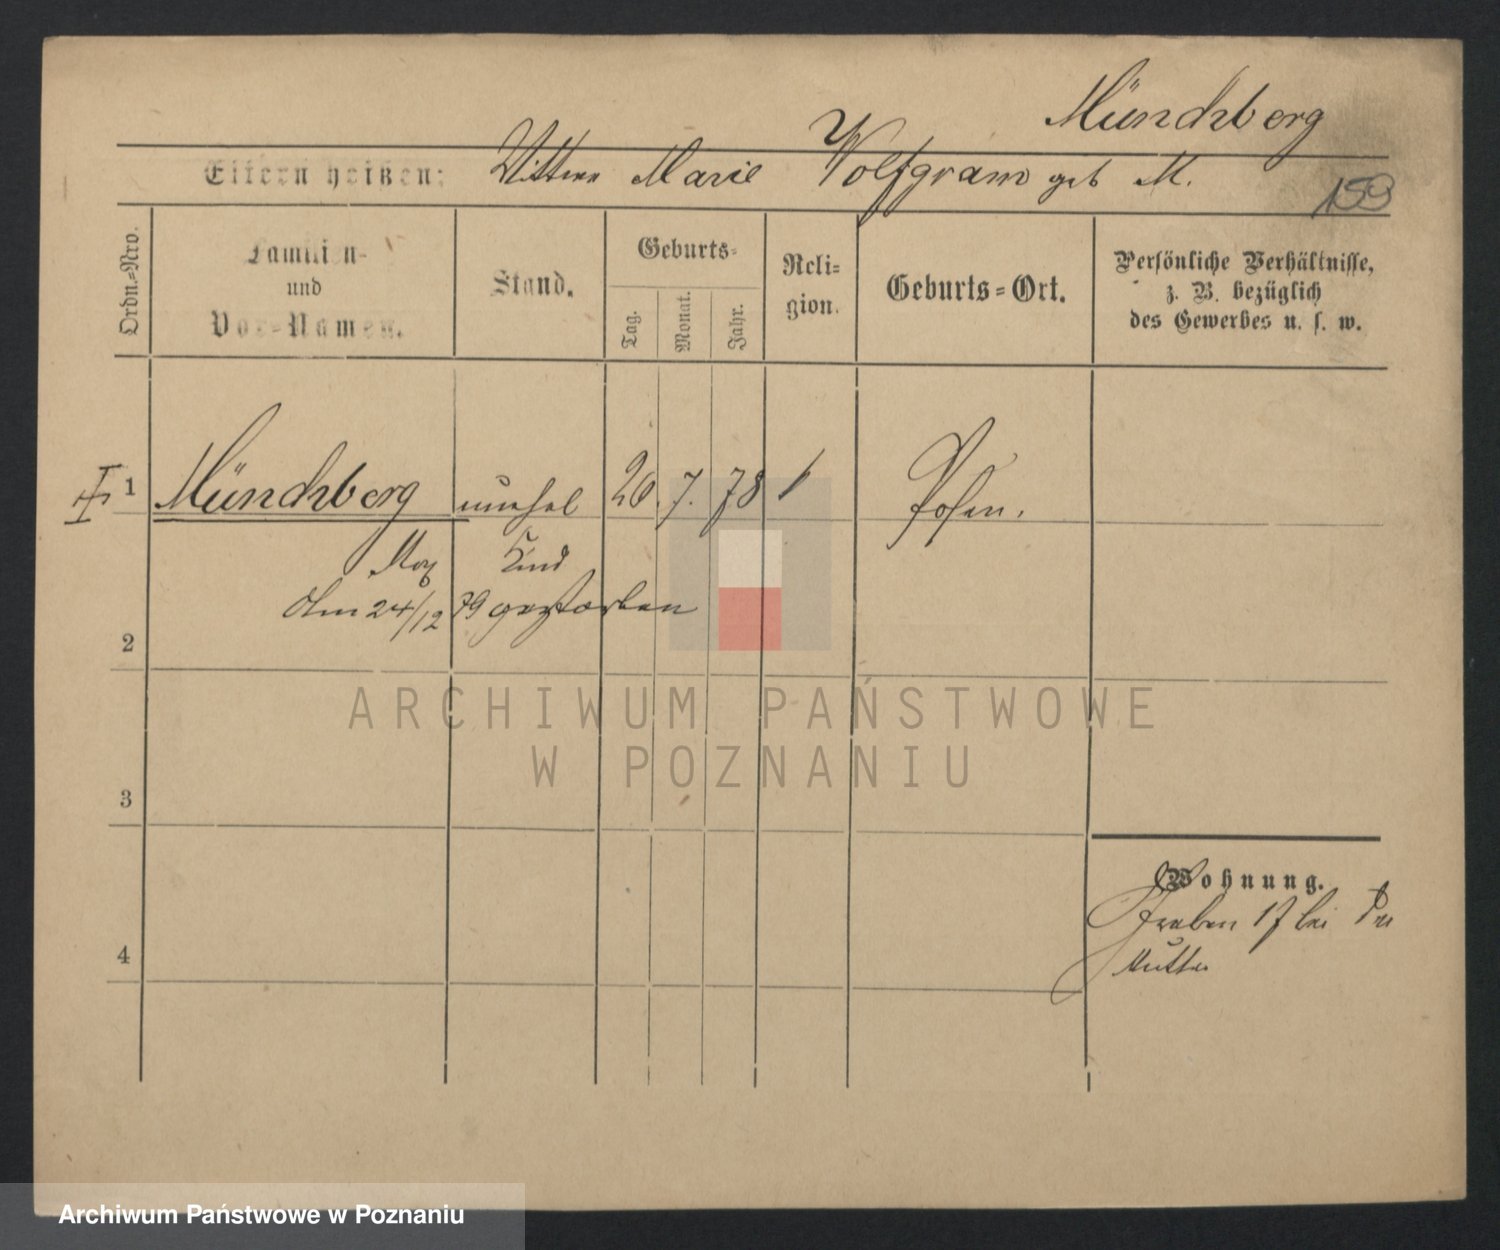 Münchberg
Eltern heißen: Wittwe Marie Wolfgram geb M.
159
Ordn.=Nro.
Familien-
und
Vor=Namen.
Stand.
Geburts=
Tag.
Monat.
Jahr.
Reli=
gion.
Geburts=Ort.
Persönliche Verhältnisse,
z. B. bezüglich
des Gewerbes u. s. w.
1 Münchberg unehel 20. 7. 78 Posen.
Max Kind
Am 24/12 79 gestorben
2
3
4
Wohnung.
Graben 17 bei der
Mutter
ARCHIWUM PAŃSTWOWE
W POZNANIU
Archiwum Państwowe w Poznaniu